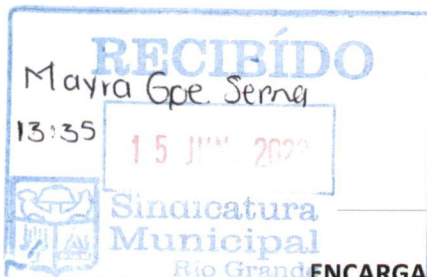 RECIBÍDO
Mayra Gpe. Serna
13:35
15 JUN
Sindicatura
Municipal
Río Grande
ENCARGA